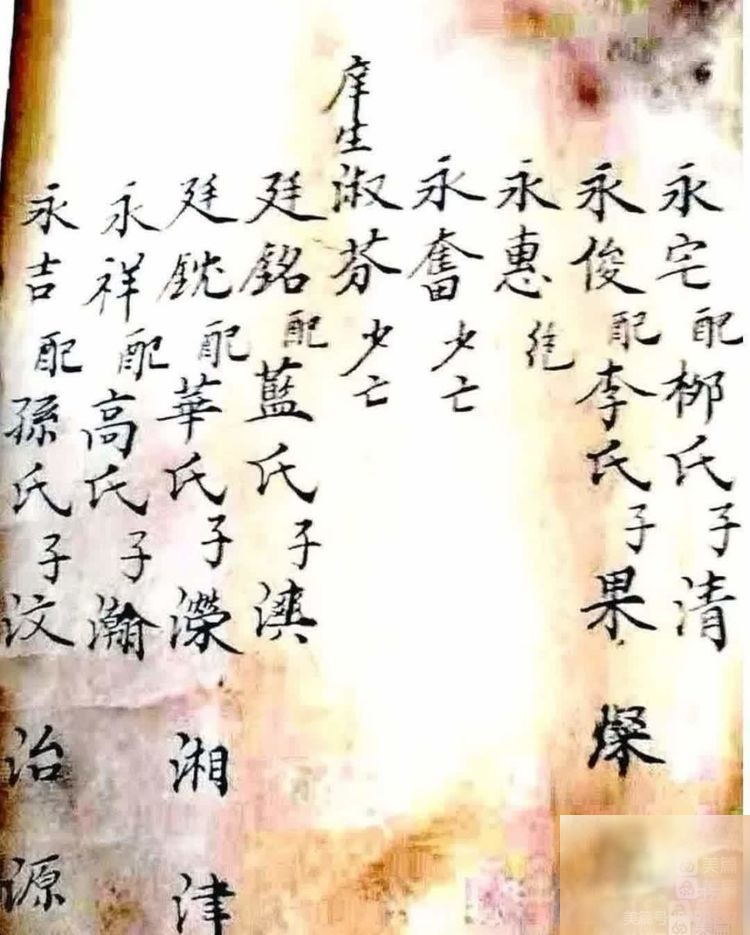 永宅配柳氏子清
永俊配李氏子果燦
永惠
永奮少亡
庠生淑芬少亡
廷銘配藍氏子渼
廷銳配華氏子濚湘津
永祥配高氏子瀚
永吉配孫氏子汶治源
美篇